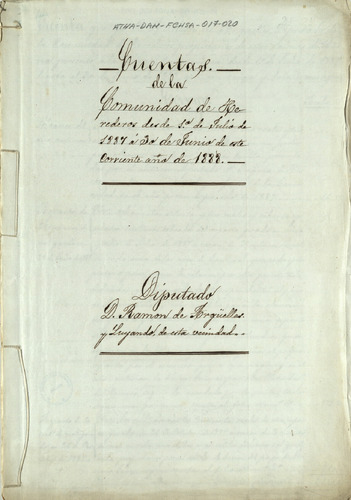 ATHA-DAH-FCHSA-017-020
Cuentas.
de la
Comunidad de He-
rederos desde 1.º de Julio de
1887 á 30 de Junio de este
corriente año de 1888.
Diputado
D. Ramon de Argüelles
y Luyando, de esta vecindad.